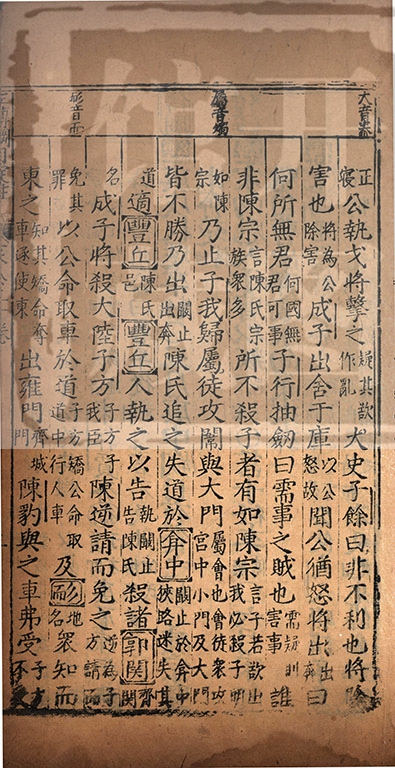 大音泰
屬音燭
耏音而
正寢公執戈將擊之疑其欲作亂大史子餘曰非不利也將除
害也將為公除害成子出舍于庫以公怒故聞公猶怒將出出奔曰
何所無君何國無君可事子行抽劒曰需事之賊也需疑則害事誰
非陳宗言陳氏宗族衆多所不殺子者有如陳宗言子若欲出我必殺子明
如陳宗乃止子我歸屬徒攻闈與大門屬會也會徒衆攻宮中小門及大門
皆不勝乃出闞止出奔陳氏追之失道於弇中闞止於弇中狹路迷失其
道適豐丘陳氏邑豐丘人執之以告執闞止告陳氏殺諸郭関齊関
名成子將殺大陸子方子方我臣陳逆請而免之逆為子方請而
免其罪以公命取車於道子方矯公命取道中行人車及耏地名衆知而
東之知其矯命奪車逐使東出雍門齊城門陳豹與之車弗受子方不受